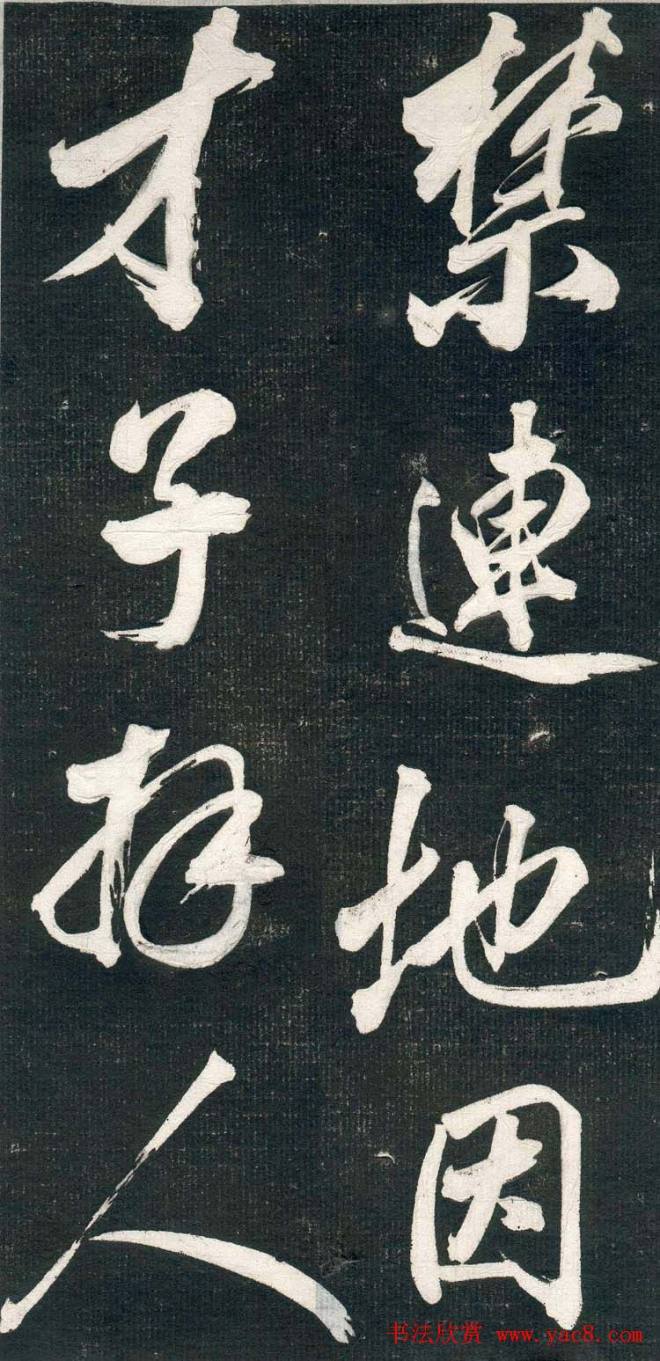 禁連地因
才子人
书法欣赏 www.yac8.com